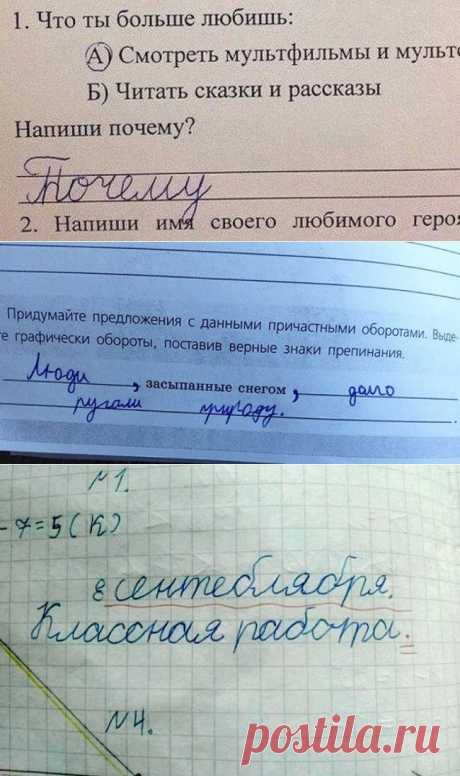 1. Что ты больше любишь:
А) Смотреть мультфильмы и мульт
Б) Читать сказки и рассказы
Напиши почему?
Почему
2. Напиши имя своего любимого героя
Придумайте предложения с данными причастными оборотами. Выде-
те графически обороты, поставив верные знаки препинания.
Люди, засыпанные снегом, долго
ругали природу.
№1.
-7=5(К)
8 сентеблября.
Классная работа.
№4.
postila.ru